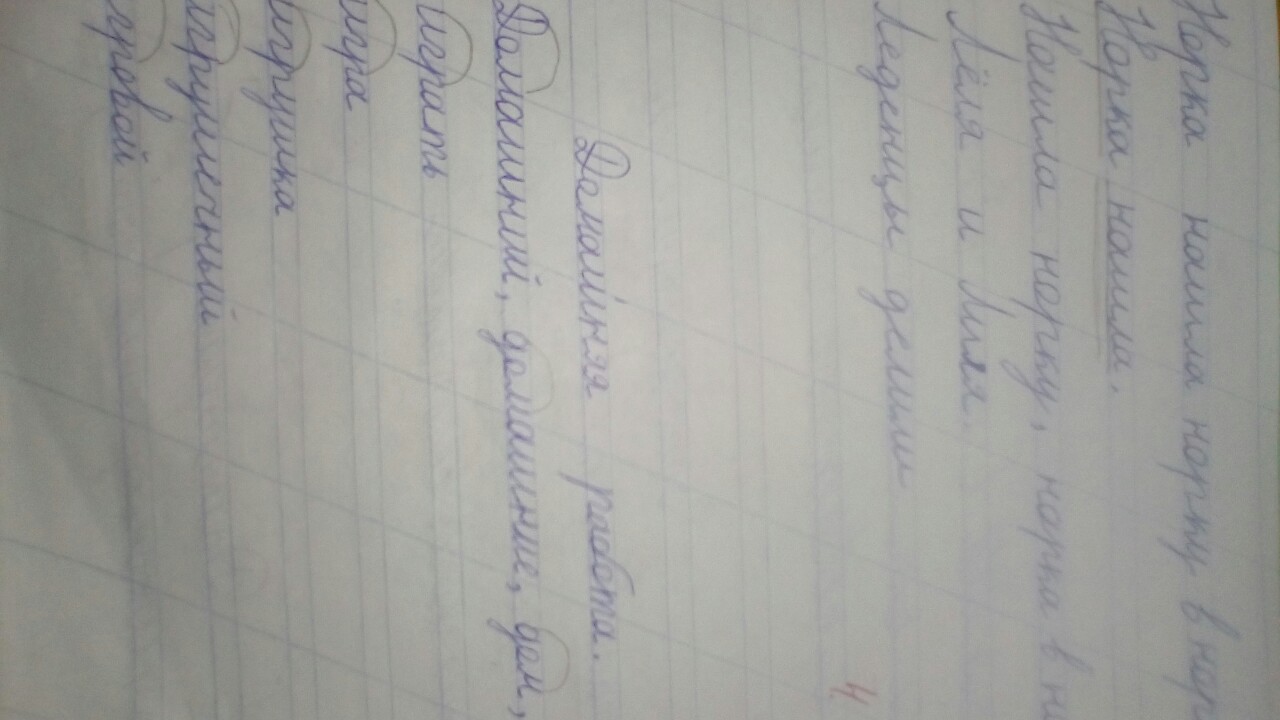 Норка нашла норку в нор
Норка нашла.
Нашла норку, норка в н
Лёля и Лиля.
Леденцы делили
4
Домашняя работа.
Домашний, домашние, дом,
Играть
игра
игрушка
игрушечный
гровой